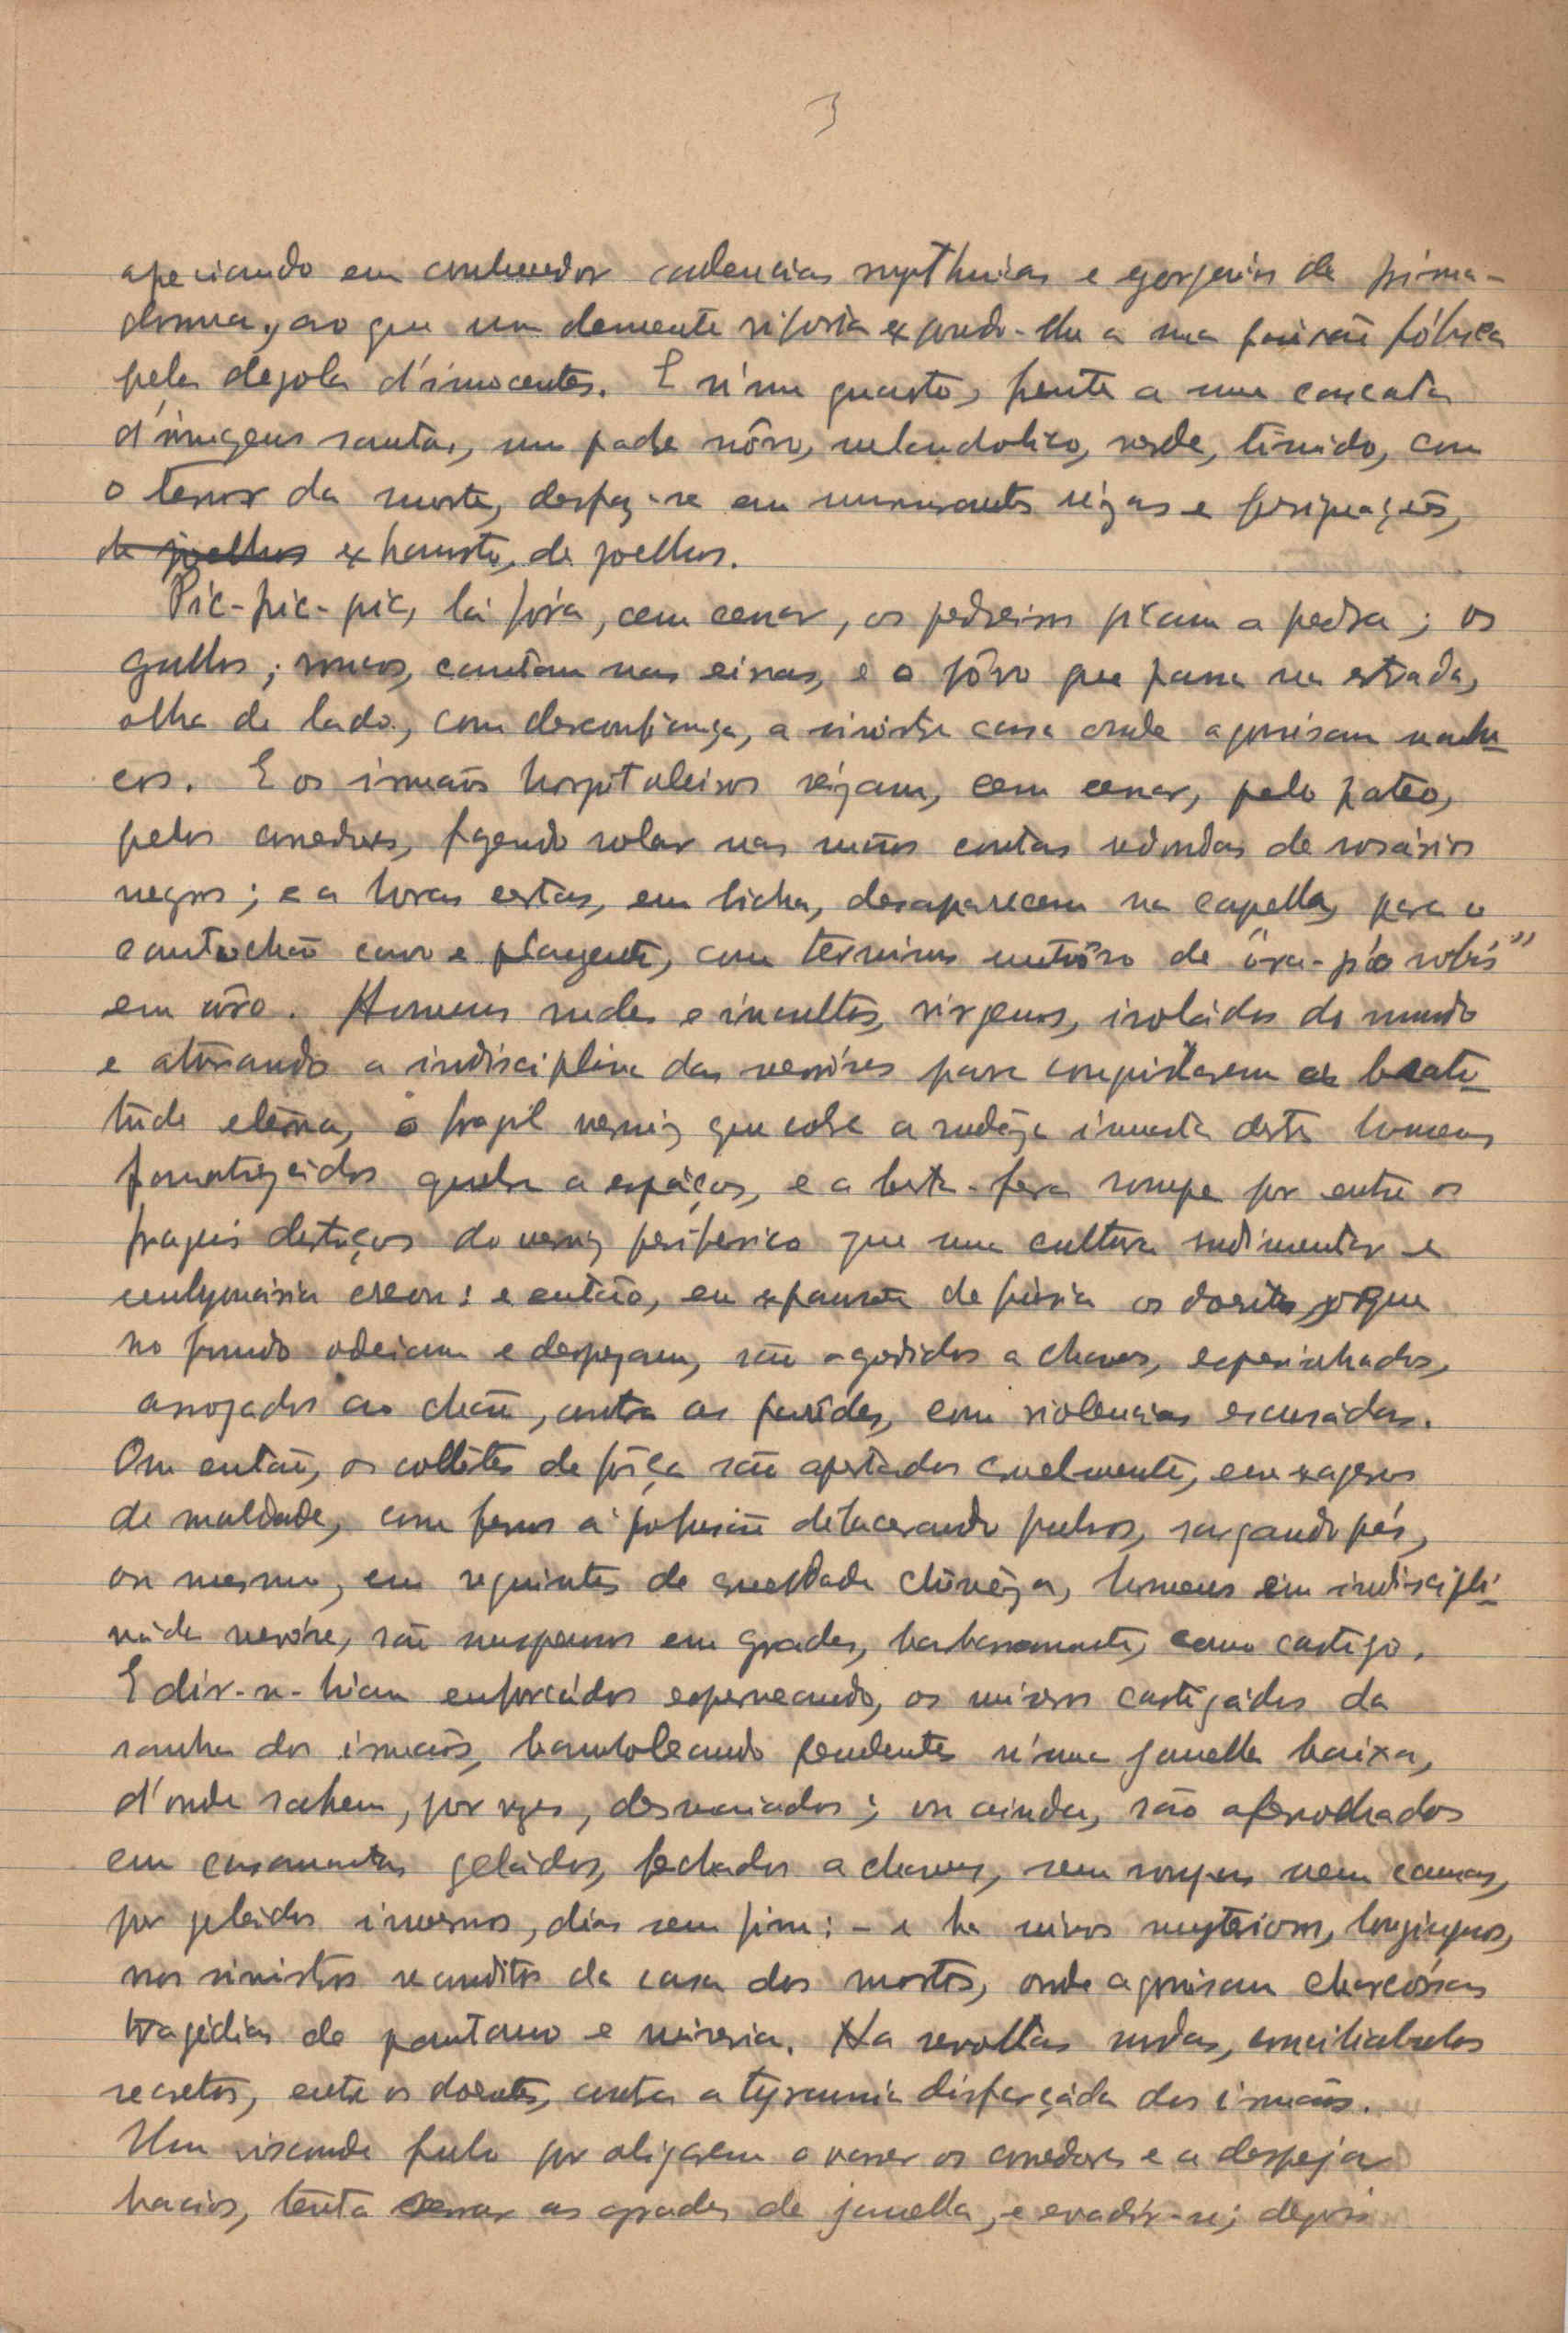 3
apreciando em conhecedor cadencias rythmicas e gorgeios de prima-
donna, ao que um demente riposta expondo-lhe a sua paixão fóbica
pela degola d'innocentes. E n'um quarto, frente a uma cascata
d'imagens santas, um padre nôvo, melancholico, verde, timido, com
o terror da morte, desfaz-se em murmurantes rézas e persignações,
de joelhos exhausto, de joelhos.
Pic-pic-pic, lá fóra, cem cessar, os pedreiros picam a pedra; os
gallos, roucos, cantam nas eiras, e o pôvo que passa na estrada,
olha de lado, com desconfiança, a sinistra casa onde agonisam malu-
cos. E os irmaõs hospitaleiros rézam, cem cessar, pelo pateo,
pelos corredores, fazendo rolar nas mãos contas redondas de rosários
negros; e a horas certas, em bicha, desaparecem na capella, para o
cantochão cavo e plangente, com terminus de "óra-pró nobis"
em côro. Homens rudes e incultos, virgens, isoládos do mundo
e aturando a indisciplina das nevróses para conquistarem a beati-
tude etérna, o fragil verniz que cobre a rudêza innata destes homens
fanatizádos quebra a espáços, e a besta-fera rompe por entre os
frageis destróços do verniz periferico que uma cultura rudimentar e
creou: e então, em expansões de fúria os doentes, que
no fundo odeiam e desprezam, são agredidos a chaves, espesinhados,
arrojados ao chão, contra as parêdes, com violencias escusádas.
Ou então, os collêtes de fôrça são apertados cruelmente, em exageros
de maldade, com ferros á profusão dilacerando pulsos, rasgando pés,
ou mesmo, em requintes de crueldade chinêza, homens em indiscipli-
náda nevróse, são suspensos em grades, barbaramente, como castigo.
E dir-se-hiam enforcádos esperneando, os miseros castigádos da
sanha dos irmaõs, bamboleando pendentes n'uma janella baixa,
d'onde sahem, por vezes, desmaiados; ou ainda, são aferrolhados
em casamatas geládas, fechados a chaves, sem roupas nem camas,
por geládos invernos, dias sem fim: - e ha uivos mysteriosos, longinquos,
nos sinistros recanditos da casa dos mortos, onde agonisam charcósas
tragédias de pantano e miseria. Ha revoltas surdas, conciliabulos
secretos, entre os doentes, contra a tyrannia disfarçáda dos irmaõs.
Um visconde fulo por obrigarem a varrer os corredores e a despejar
bacios, tenta serrar as grades da janella, e evadir-se; depois